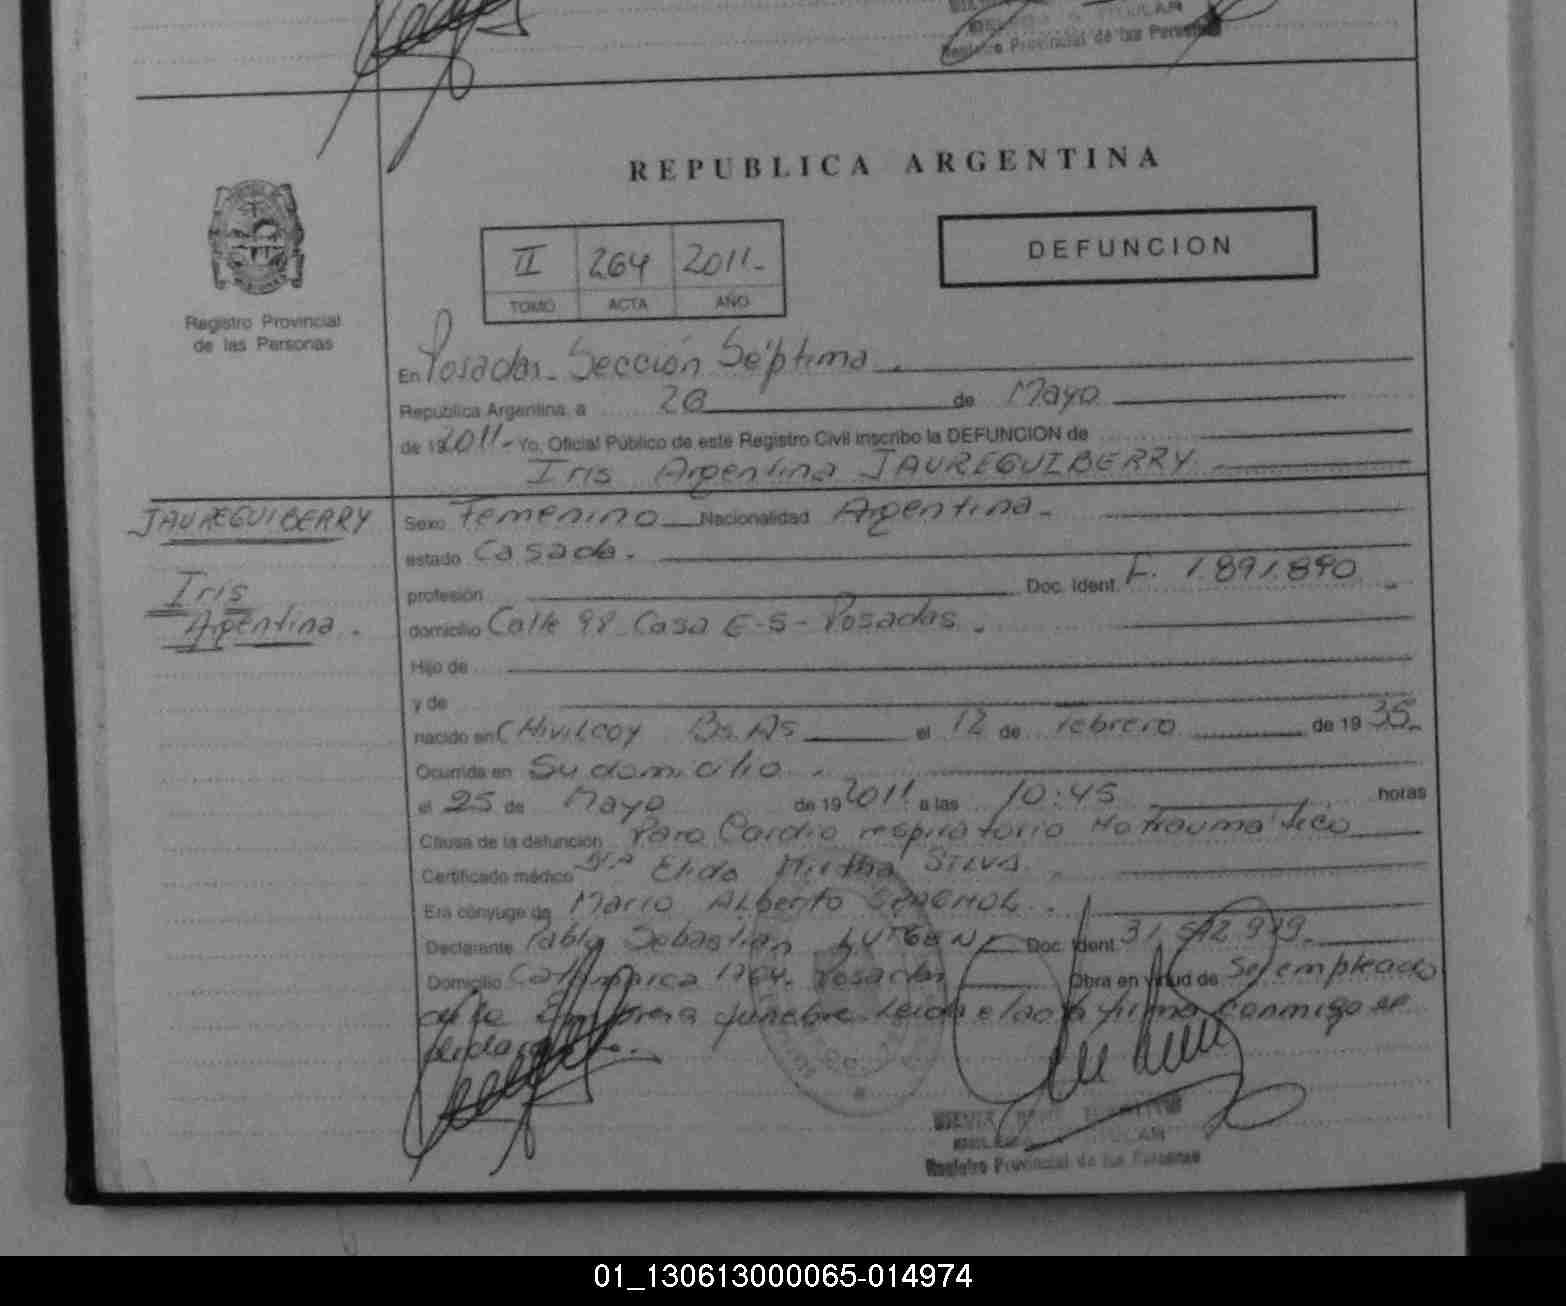 TITULAR
Registro Provincial de las Personas
REPUBLICA ARGENTINA
II 264 2011.-
TOMO ACTA AÑO
DEFUNCION
Registro Provincial
de las Personas
En Posadas. Sección Séptima
República Argentina, a 28 de Mayo
de 19 2011.- Yo, Oficial Público de este Registro Civil inscribo la DEFUNCION de
Iris Argentina JAUREGUIBERRY
JAUREGUIBERRY
Iris
Argentina.
Sexo Femenino Nacionalidad Argentina.
estado Casada.
profesión Doc. Ident. F. 1.891.890
domicilio Calle 98 Casa E-5- Posadas
Hijo de
y de
nacido en CHIVILCOY Bs. As el 12 de Febrero de 19 35.
Ocurrida en Su domicilio
el 25 de Mayo de 19 2011 a las 10:45 horas
Causa de la defunción Paro Cardio respiratorio No traumático
Certificado médico Dra Elida Mirtha SILVA.
Era cónyuge de Mario ALberto
Declarante Pablo Sebastian Doc. Ident. 31
Domicilio Catamarca 1764. Posadas Obra en virtud de Ser empleado
de la Empresa funebre. Leida el acta firma conmigo el
declarante.
TITULAR
Registro Provincial de las Personas
01_130613000065-014974